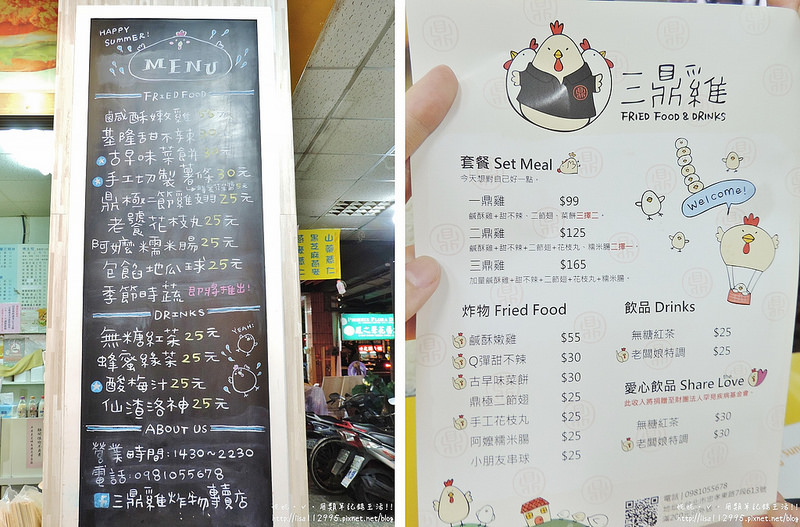 HAPPY
SUMMER!
MENU
FRIED FOOD
鹹酥嫩雞 55元
基隆甜不辣 30元
古早味菜餅 30元
手工切製薯條 30元
鼎極二節雞翅 25元
老饕花枝丸 25元
阿嬤糯米腸 25元
包餡地瓜球 25元
季節時蔬 即將推出!
DRINKS
無糖紅茶 25元
蜂蜜綠茶 25元
酸梅汁 25元
仙渣洛神 25元
YEAH!
ABOUT US
營業時間:1430~2230
電話:0981055678
三鼎雞炸物專賣店
鼎
三鼎雞
FRIED FOOD & DRINKS
套餐 Set Meal
今天想對自己好一點。
一鼎雞 $99
鹹酥雞+甜不辣、二節翅、菜餅三擇二。
二鼎雞 $125
鹹酥雞+甜不辣+二節翅+花枝丸、糯米腸二擇一。
三鼎雞 $165
加量鹹酥雞+甜不辣+二節翅+花枝丸+糯米腸。
Welcome!
炸物 Fried Food
鹹酥嫩雞 $55
Q彈甜不辣 $30
古早味菜餅 $30
鼎極二節翅 $25
手工花枝丸 $25
阿嬤糯米腸 $25
小朋友串球 $25
飲品 Drinks
無糖紅茶 $25
老闆娘特調 $25
愛心飲品 Share the Love
此收入將捐贈至財團法人罕見疾病基金會。
無糖紅茶 $30
老闆娘特調 $30
電話 | 0981055678
http://lisa112996.pixnet.net/blog
http://lisa112996.pixnet.net/blog